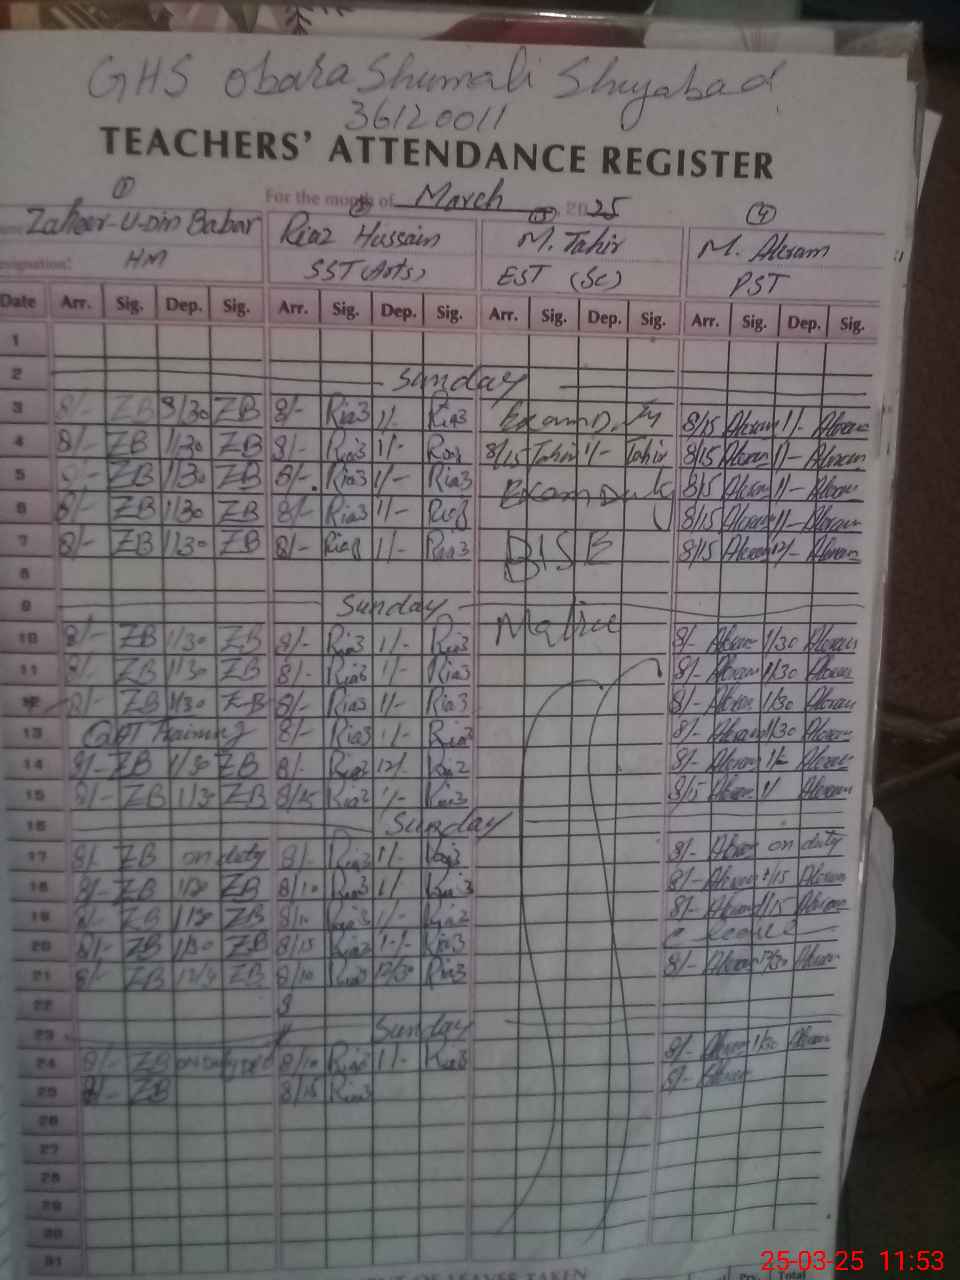 GHS Obara Shumali Shujabad
36120011
TEACHERS' ATTENDANCE REGISTER
For the month of March 2025
① ② ③ ④
Zaheer-U-Din Babar Riaz Hussain M. Tahir M. Akram
HM SST (Arts) EST (Sc) PST
Date Arr. Sig. Dep. Sig. Arr. Sig. Dep. Sig. Arr. Sig. Dep. Sig. Arr. Sig. Dep. Sig.
1
2 Sunday
3 8/- ZB ZB 8/- Riaz 1/- Riaz Exam 8/15 Akram 1/- Akram
4 8/- ZB 1/30 ZB 8/- Riaz 1/- Riaz 8/15 Tahir 1/- Tahir 8/15 Akram 1/- Akram
5 8/- ZB 1/30 ZB 8/- Riaz 1/- Riaz Exam Duty 8/15 Akram 1/- Akram
6 8/- ZB 1/30 ZB 8/- Riaz 1/- Riaz 8/15 Akram 1/- Akram
7 8/- ZB 1/30 ZB 8/- Riaz 1/- Riaz BISE 8/15 Akram 12/- Akram
8
9 Sunday
10 8/- ZB 1/30 ZB 8/- Riaz 1/- Riaz Matric 8/- Akram 1/30 Akram
11 8/- ZB 1/30 ZB 8/- Riaz 1/- Riaz 8/- Akram 1/30 Akram
12 8/- ZB 1/30 ZB 8/- Riaz 1/- Riaz 8/- Akram 1/30 Akram
13 Training 8/- Riaz 1/- Riaz 8/- Akram 1/30 Akram
14 8/- ZB 1/30 ZB 8/- Riaz 12/- Riaz 8/- Akram 1/- Akram
15 8/- ZB 1/30 ZB 8/15 Riaz 1/- Riaz 8/15 Akram 1/ Akram
16 Sunday
17 8/- ZB on duty 8/- Riaz 1/- Riaz 8/- Akram on duty
18 8/- ZB ZB 8/10 Riaz 1/ Riaz 8/- Akram 1/15 Akram
19 8/- ZB 1/30 ZB 8/10 Riaz 1/- Riaz 8/- Akram 1/15 Akram
20 8/- ZB 1/30 ZB 8/15 Riaz 1/- Riaz C leave
21 8/- ZB ZB 8/10 Riaz 12/30 Riaz 8/- Akram 12/30 Akram
22
23 Sunday
24 8/- ZB on duty 8/10 Riaz 1/- Riaz 8/- Akram 1/30 Akram
25 8/- ZB 8/15 Riaz 8/- Akram
26
27
28
29
30
31
OF LEAVES TAKEN
Total
25-03-25 11:53